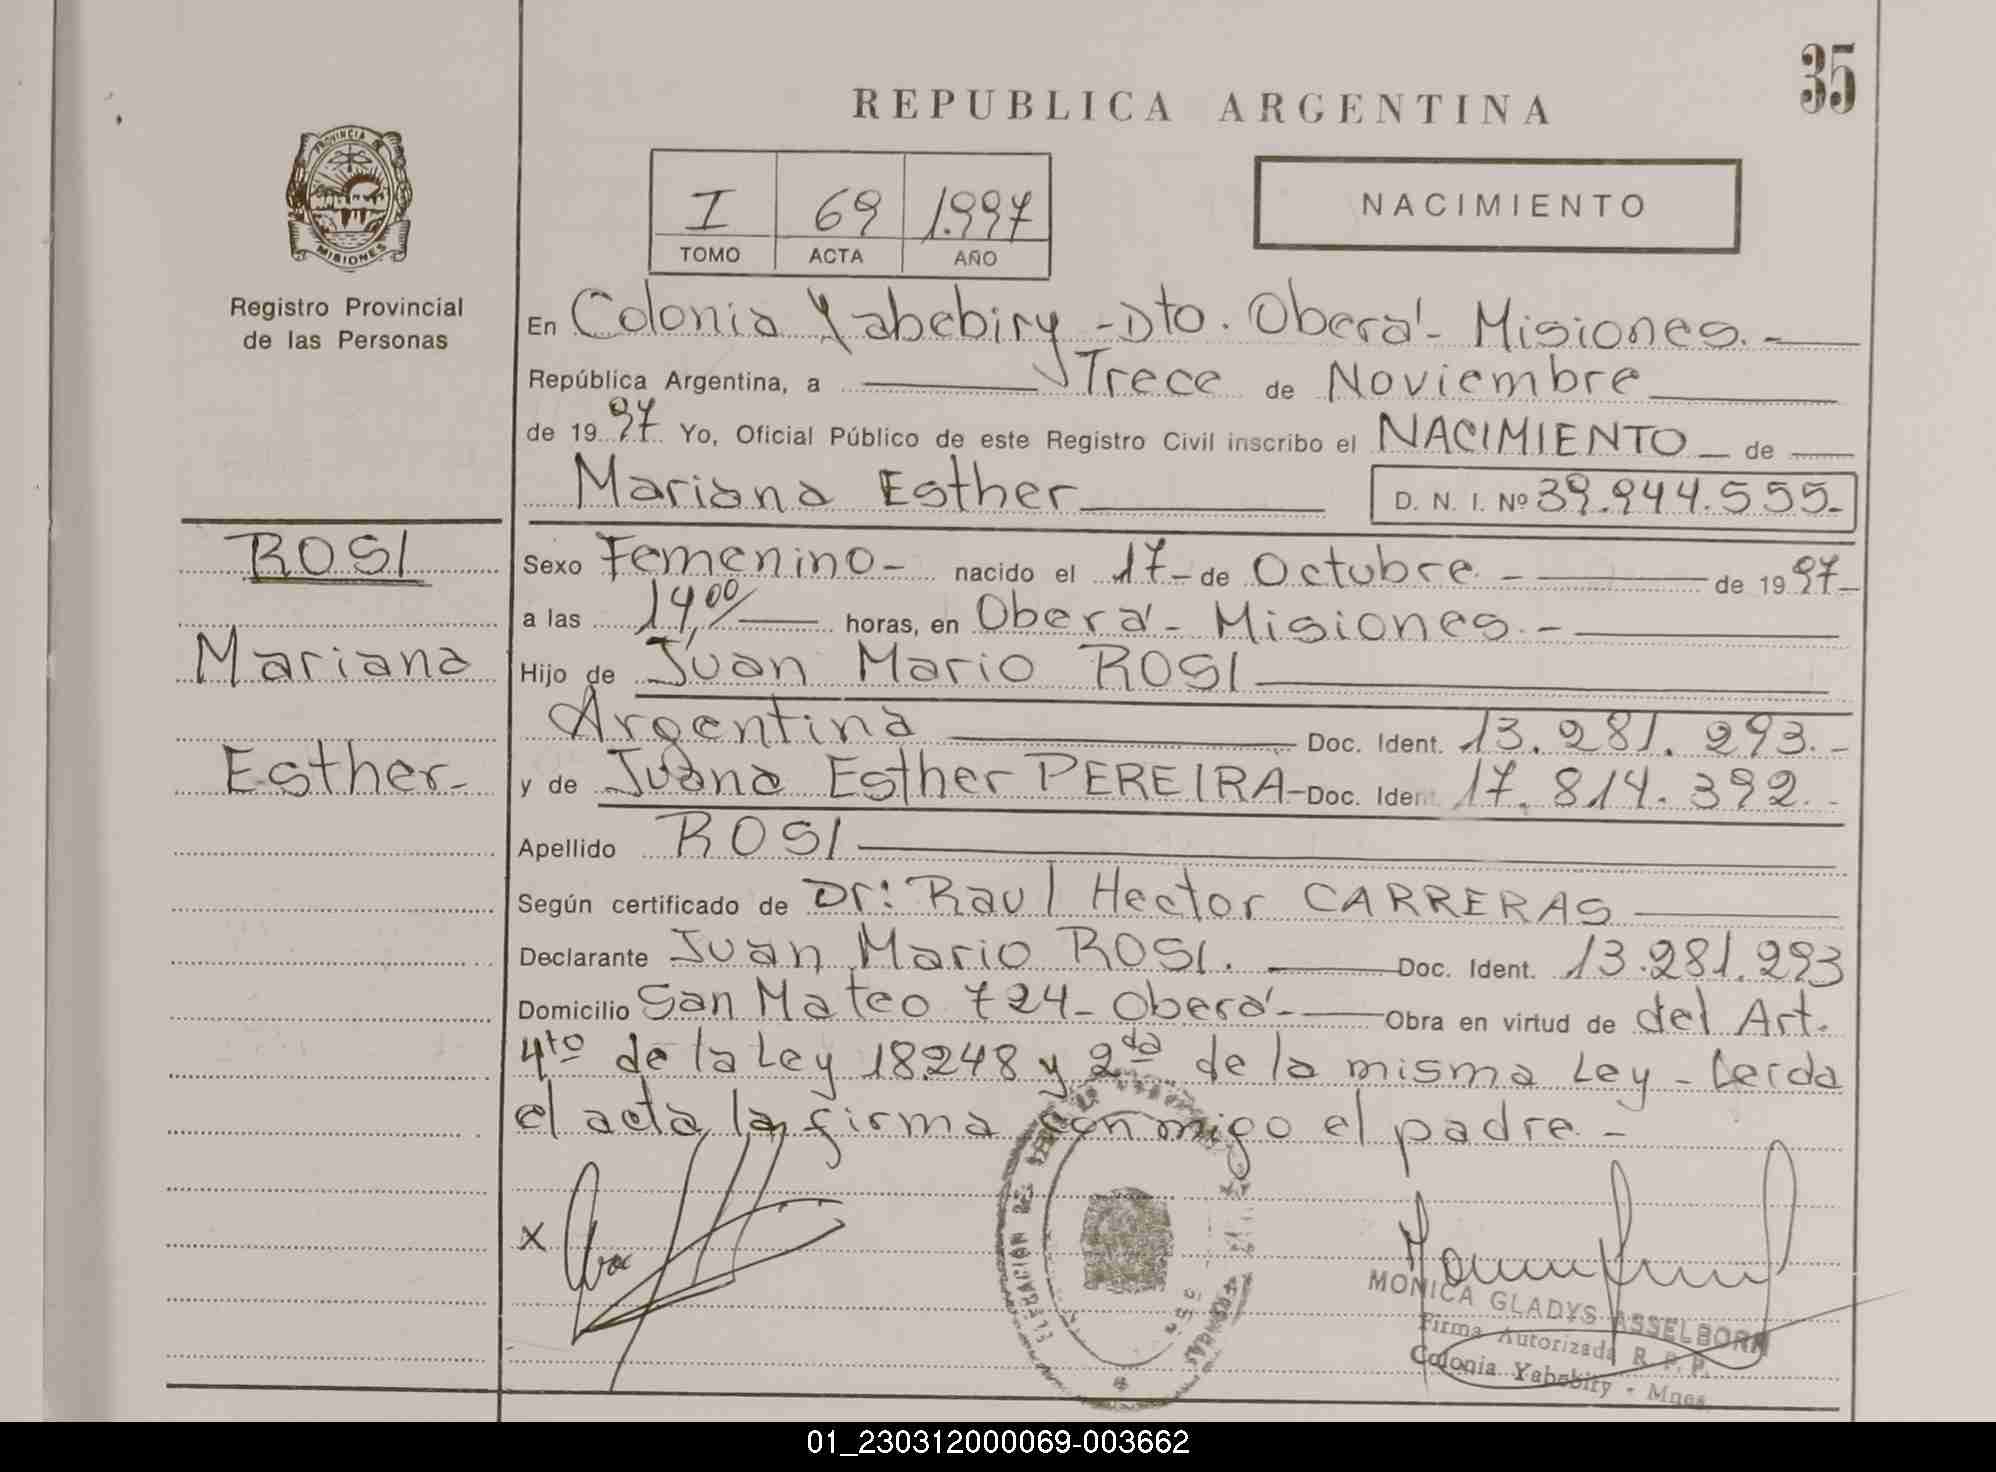 35
REPUBLICA ARGENTINA
PROVINCIA
MISIONES
Registro Provincial
de las Personas
I 69 1.997
TOMO ACTA AÑO
NACIMIENTO
En Colonia Yabebiry - Dto. Oberá - Misiones. -
República Argentina, a Trece de Noviembre
de 1997 Yo, Oficial Público de este Registro Civil inscribo el NACIMIENTO - de
Mariana Esther D. N. I. Nº 39.944.555-
ROSI
Mariana
Esther-
Sexo Femenino- nacido el 17- de Octubre - de 1997-
a las 14,00 horas, en Oberá - Misiones. -
Hijo de Juan Mario ROSI
Argentina Doc. Ident. 13.281.293.-
y de Juana Esther PEREIRA- Doc. Ident. 17.814.392.-
Apellido ROSI
Según certificado de Dr: Raul Hector CARRERAS
Declarante Juan Mario ROSI. Doc. Ident. 13.281.293
Domicilio San Mateo 724- Oberá- Obra en virtud de del Art.
4to de la Ley 18.248 y 2da de la misma Ley - Leída
el acta la firma conmigo el padre. -
x
MONICA GLADYS ASSELBORN
Firma Autorizada R. P. P.
Colonia Yabebity - Mnes.
01_230312000069-003662